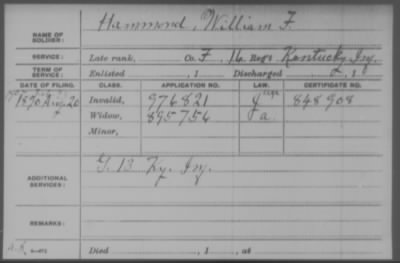 Hammond, William F.
NAME OF
SOLDIER:
SERVICE: Late rank, Co. F, 16 Reg't Kentucky Inf.
TERM OF
SERVICE: Enlisted , 1 Discharged , 1
DATE OF FILING. CLASS. APPLICATION NO. LAW. CERTIFICATE NO.
1890 Aug. 20 Invalid, 976821 848908
Widow, 895756 a
Minor,
G. 13 Ky. Inf.
ADDITIONAL
SERVICES:
REMARKS:
Died , 1 , at